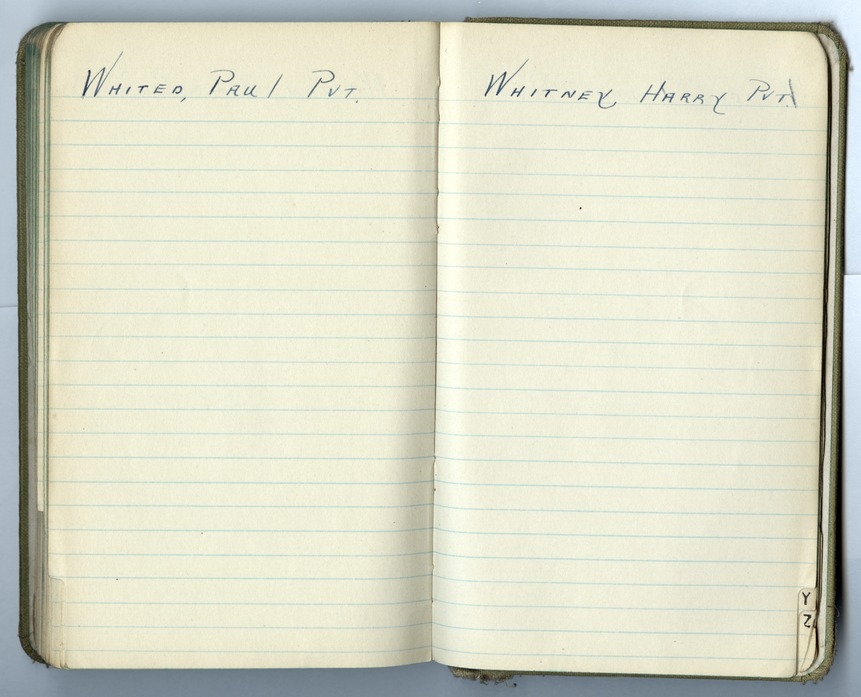 Whited, Paul Pvt.
Whitney Harry Pvt.
Y
Z